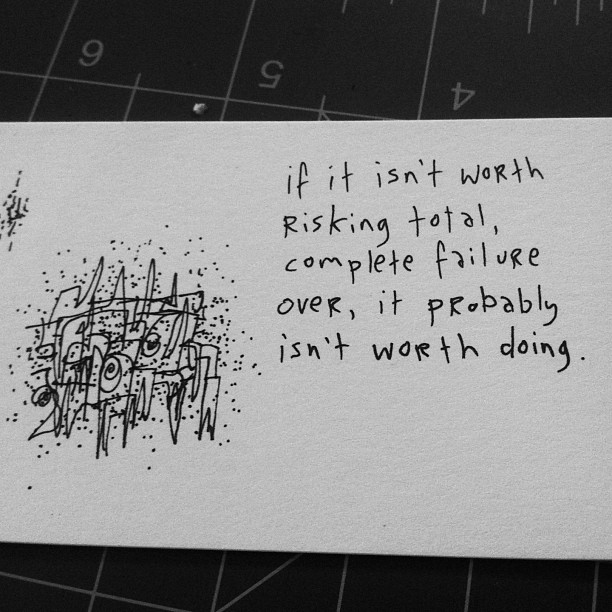 6 5 4
if it isn't worth
risking total,
complete failure
over, it probably
isn't worth doing.